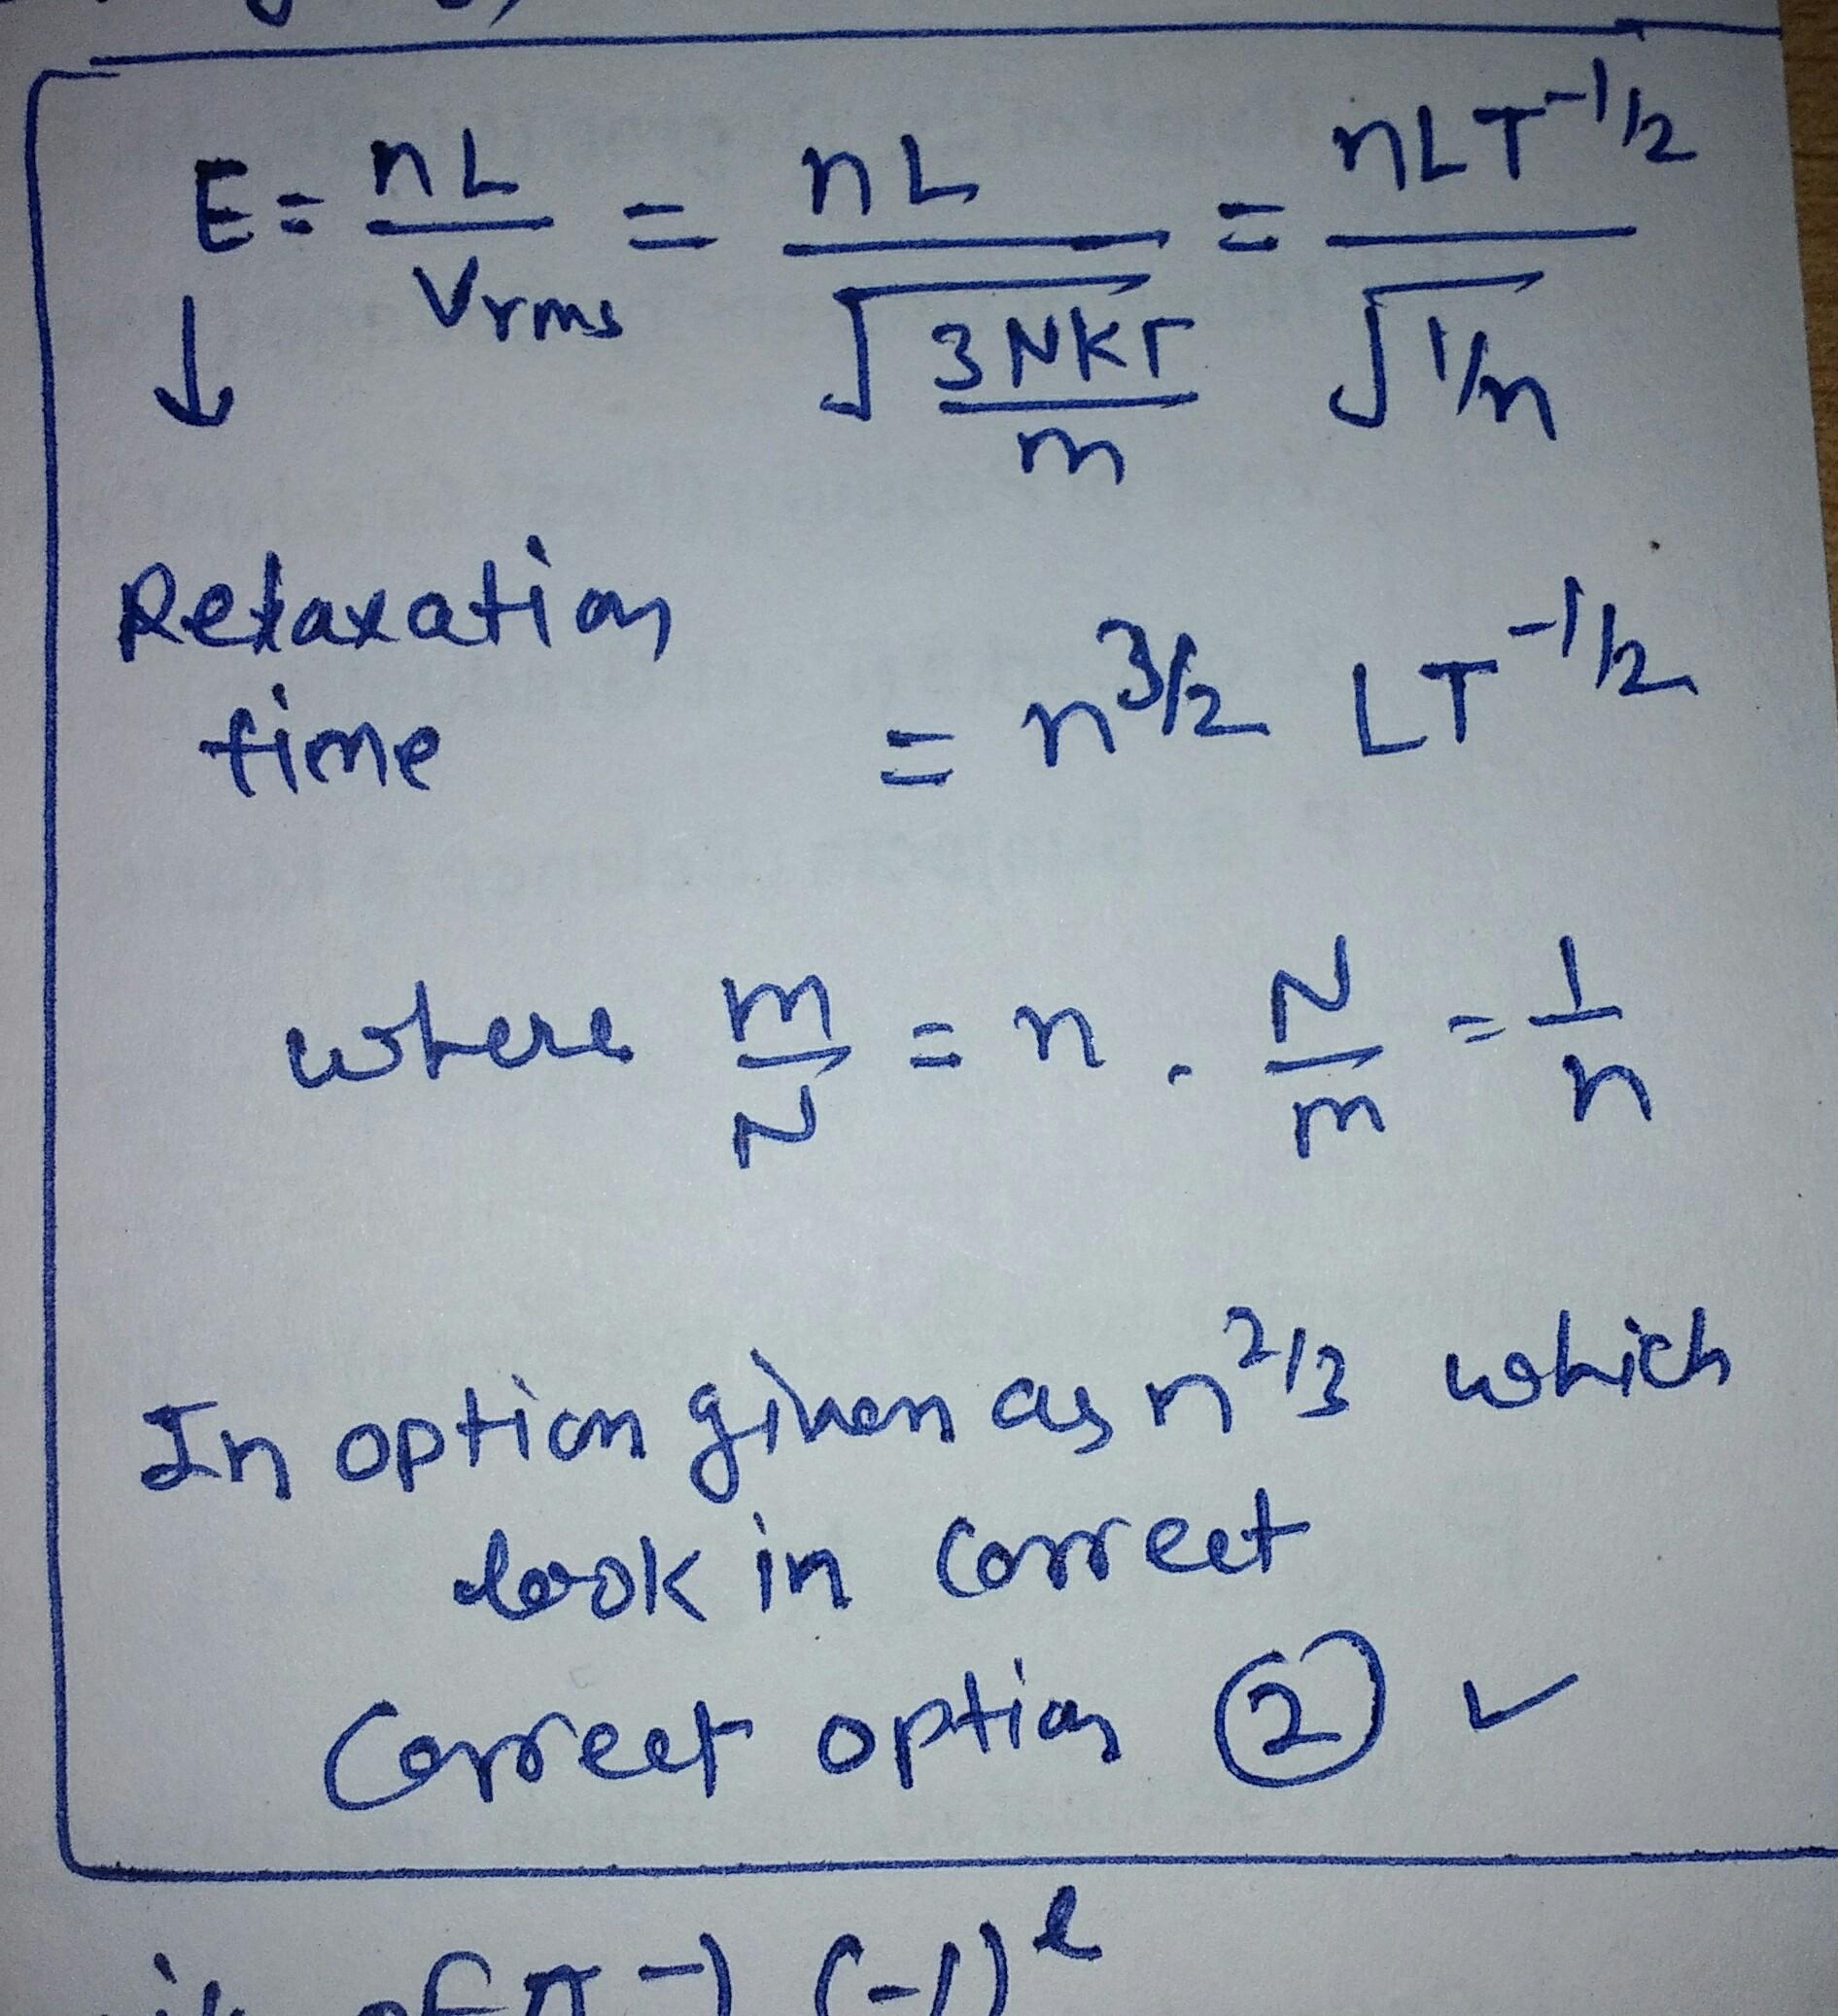 E = nL / Vrms = nL / √(3NKT / m) = nLT^-1/2 / √(1/n)
↓
Relaxation
time
= n^3/2 LT^-1/2
where m/N = n . N/m = 1/n
In option given as n^2/3 which
look in correct
Correct option ② ✓
(-1)^l